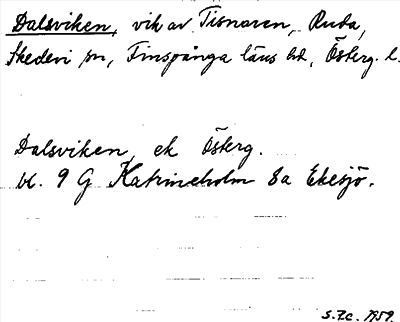 Dalsviken, vik av Tisnaren, Ruda,
Skedevi sn, Finspånga läns hd, Österg. l.
Dalsviken, ek Österg.
bl. 9 G Katrineholm 8a Ekesjö.
S.F.c. 1959.